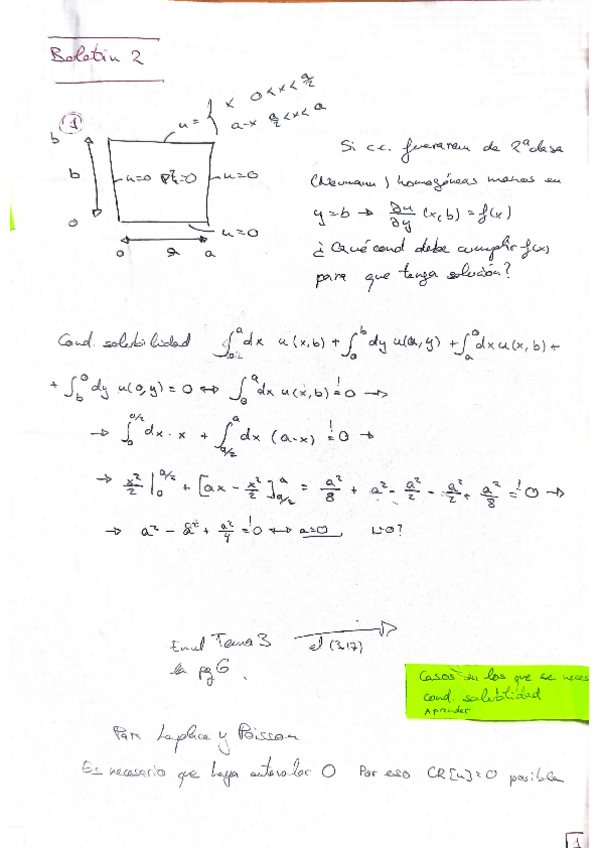 Boletín 2
1
u = { x 0<x<a/2
a-x a/2<x<a
b
b
0
u=0 ∇²u=0 u=0
u=0
0 a a
Si c.c. fueraran de 2ª clase
(Neumann) homogéneas menos en
y=b → ∂u/∂y (x,b) = f(x)
¿Qué cond debe cumplir f(x)
para que tenga solución?
Cond. solubilidad ∫₀ᵃ dx u(x,b) + ∫₀ᵇ dy u(a,y) + ∫ₐ⁰ dx u(x,b) +
+ ∫_b^0 dy u(0,y) = 0 ⟷ ∫₀ᵃ dx u(x,b) != 0 →
→ ∫₀^{a/2} dx · x + ∫_{a/2}^a dx (a-x) != 0 →
→ x²/2 |₀^{a/2} + [ax - x²/2]_{a/2}^a = a²/8 + a² - a²/2 - a²/2 + a²/8 != 0 →
→ a² - a² + a²/4 != 0 ⟷ a=0
En el Tema 3 el (3.17)
la pg 6.
Casos en los que se neces
cond. solubilidad
Aprender
Para Laplace y Poisson
Es necesario que haya autovalor 0 Por eso CR[u]=0 posible
1